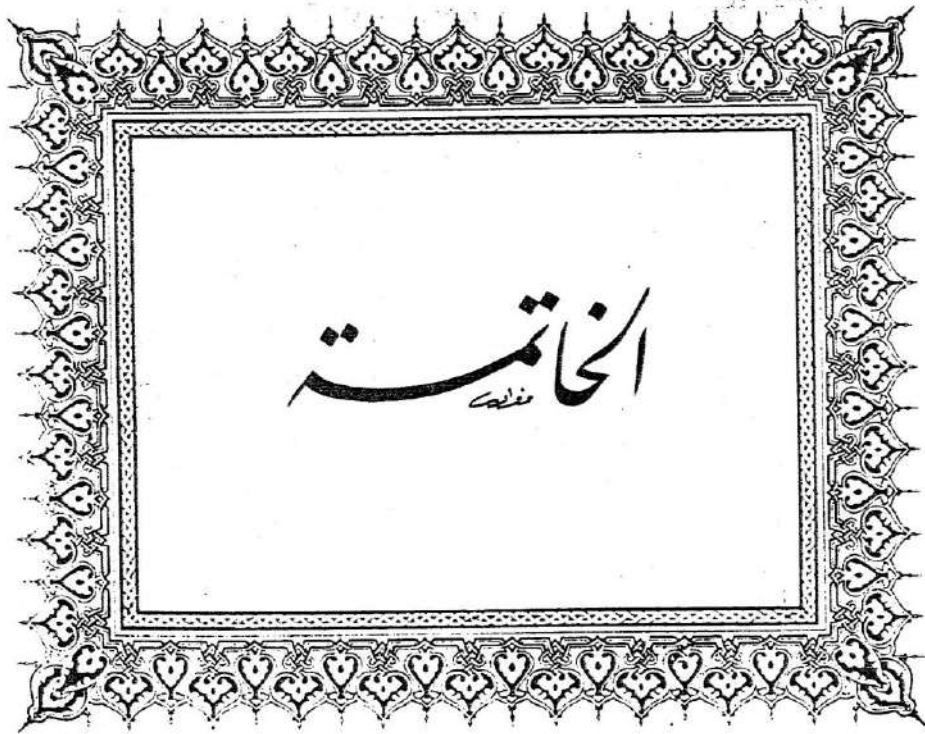 الخاتمة